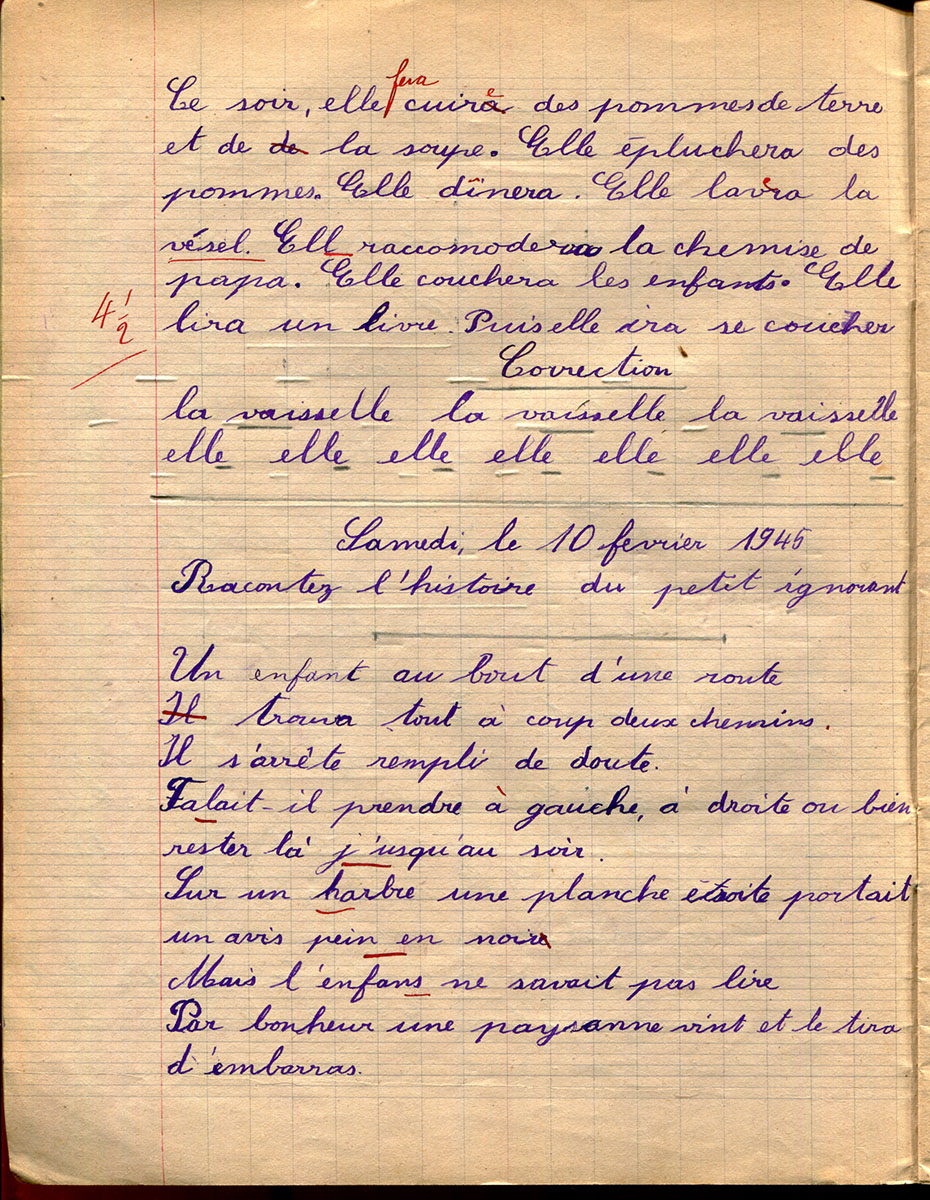 fera
Ce soir, elle cuira des pommes de terre
et de de la soupe. Elle épluchera des
pommes. Elle dînera. Elle lavra la
vésel. Ell raccomodera la chemise de
papa. Elle couchera les enfants. Elle
4 1/2
lira un livre. Puis elle ira se coucher
Correction
la vaisselle la vaisselle la vaisselle
elle elle elle elle elle elle elle
Samedi, le 10 fevrier 1945
Racontez l'histoire du petit ignorant
Un enfant au bout d'une route
Il trouva tout à coup deux chemins.
Il s'arrête rempli de doute.
Falait-il prendre à gauche, à droite ou bien
rester là j'usqu'au soir.
Sur un harbre une planche étroite portait
un avis pein en noire
Mais l'enfans ne savait pas lire
Par bonheur une paysanne vint et le tira
d'embarras.